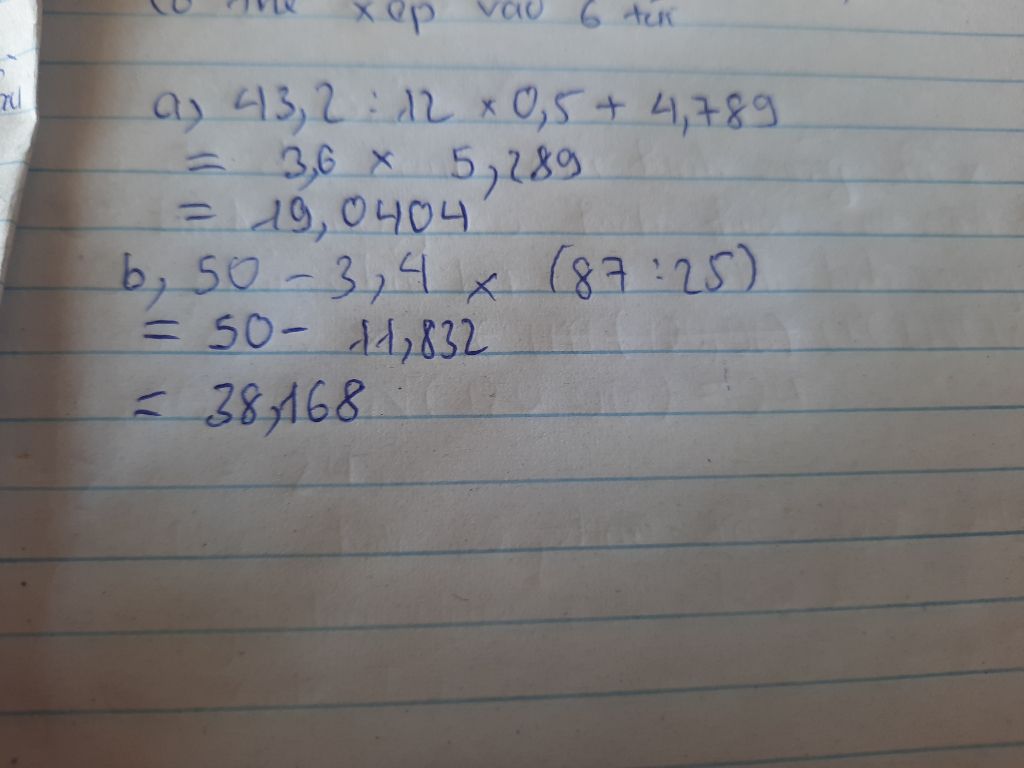 xếp vào 6
a, 43,2 : 12 × 0,5 + 4,789
= 3,6 × 5,289
= 19,0404
b, 50 - 3,4 × (87 : 25)
= 50 - 11,832
= 38,168